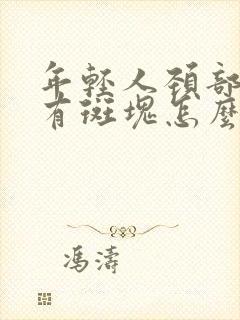 年輕人頚部
有斑塊怎麽
馮濤